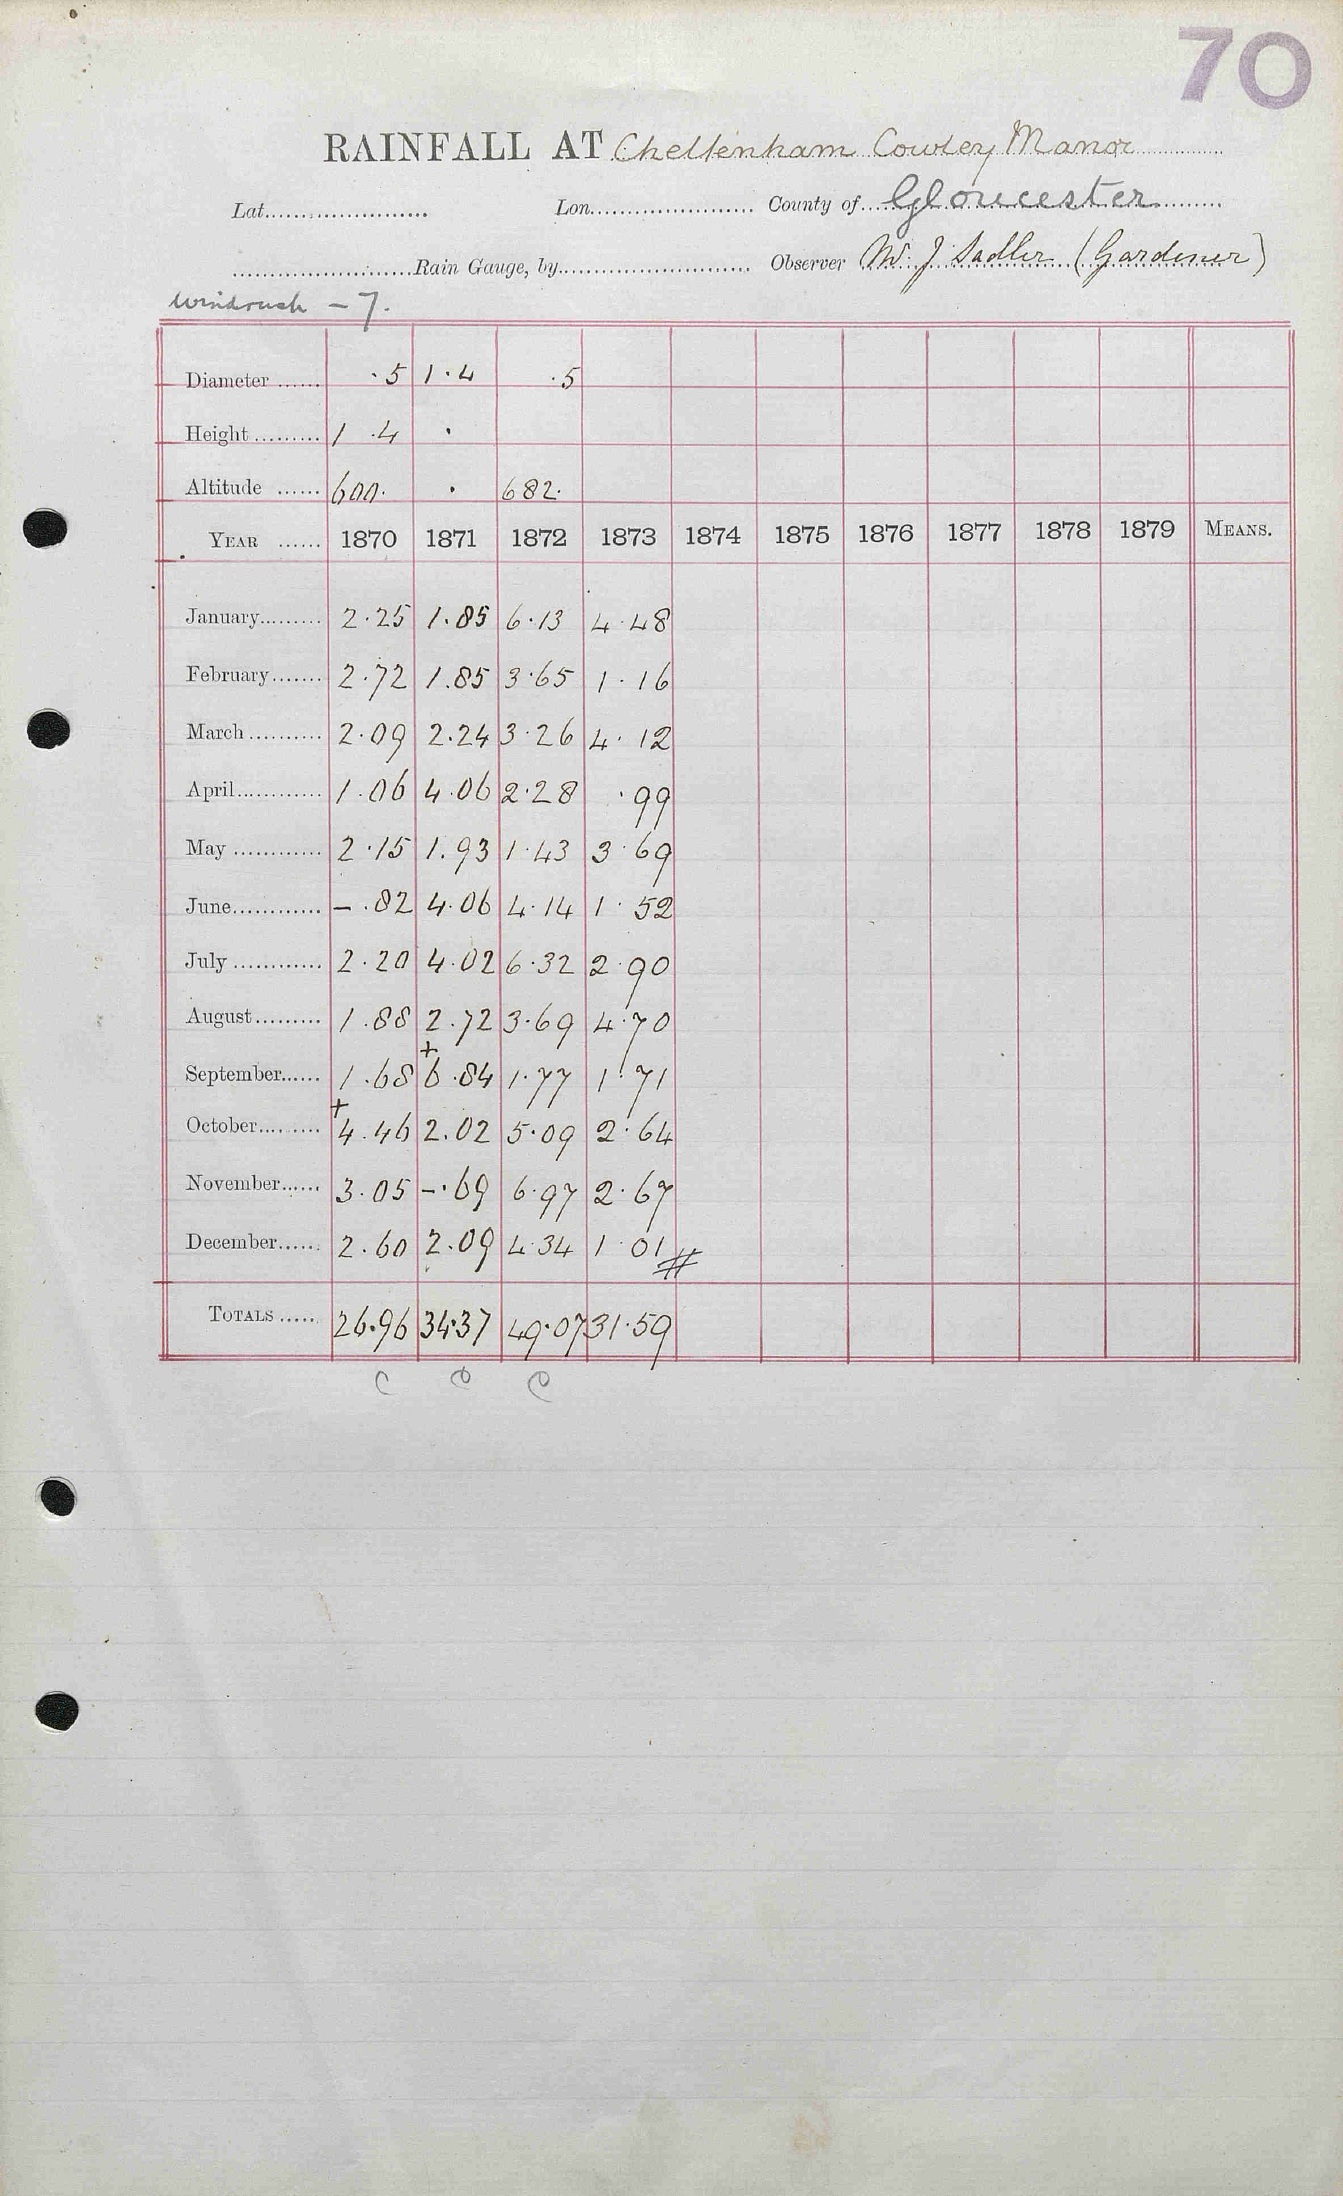 70
RAINFALL AT Cheltenham Cowley Manor
Lat. Lon. County of Gloucester
Rain Gauge, by Observer W. J. Sadler (Gardener)
Windrush – 7.
Diameter ...... ·5 1·4 ·5
Height ......... 1 ·4 ·
Altitude ...... 600. · 682.
YEAR ...... 1870 1871 1872 1873 1874 1875 1876 1877 1878 1879 MEANS.
January......... 2·25 1.85 6·13 4·48
February....... 2·72 1.85 3·65 1·16
March .......... 2·09 2.24 3·26 4·12
April............ 1·06 4·06 2·28 ·99
May ............ 2·15 1.93 1·43 3·69
June............ – .82 4·06 4·14 1·52
July ............ 2·20 4·02 6·32 2·90
August......... 1.88 2.72 3·69 4·70
September...... 1.68 + 6.84 1·77 1·71
October......... + 4.46 2.02 5·09 2·64
November...... 3·05 –·69 6·97 2·67
December...... 2.60 2.09 4·34 1·01 #
TOTALS ..... 26·96 34·37 49·07 31·59
C C C